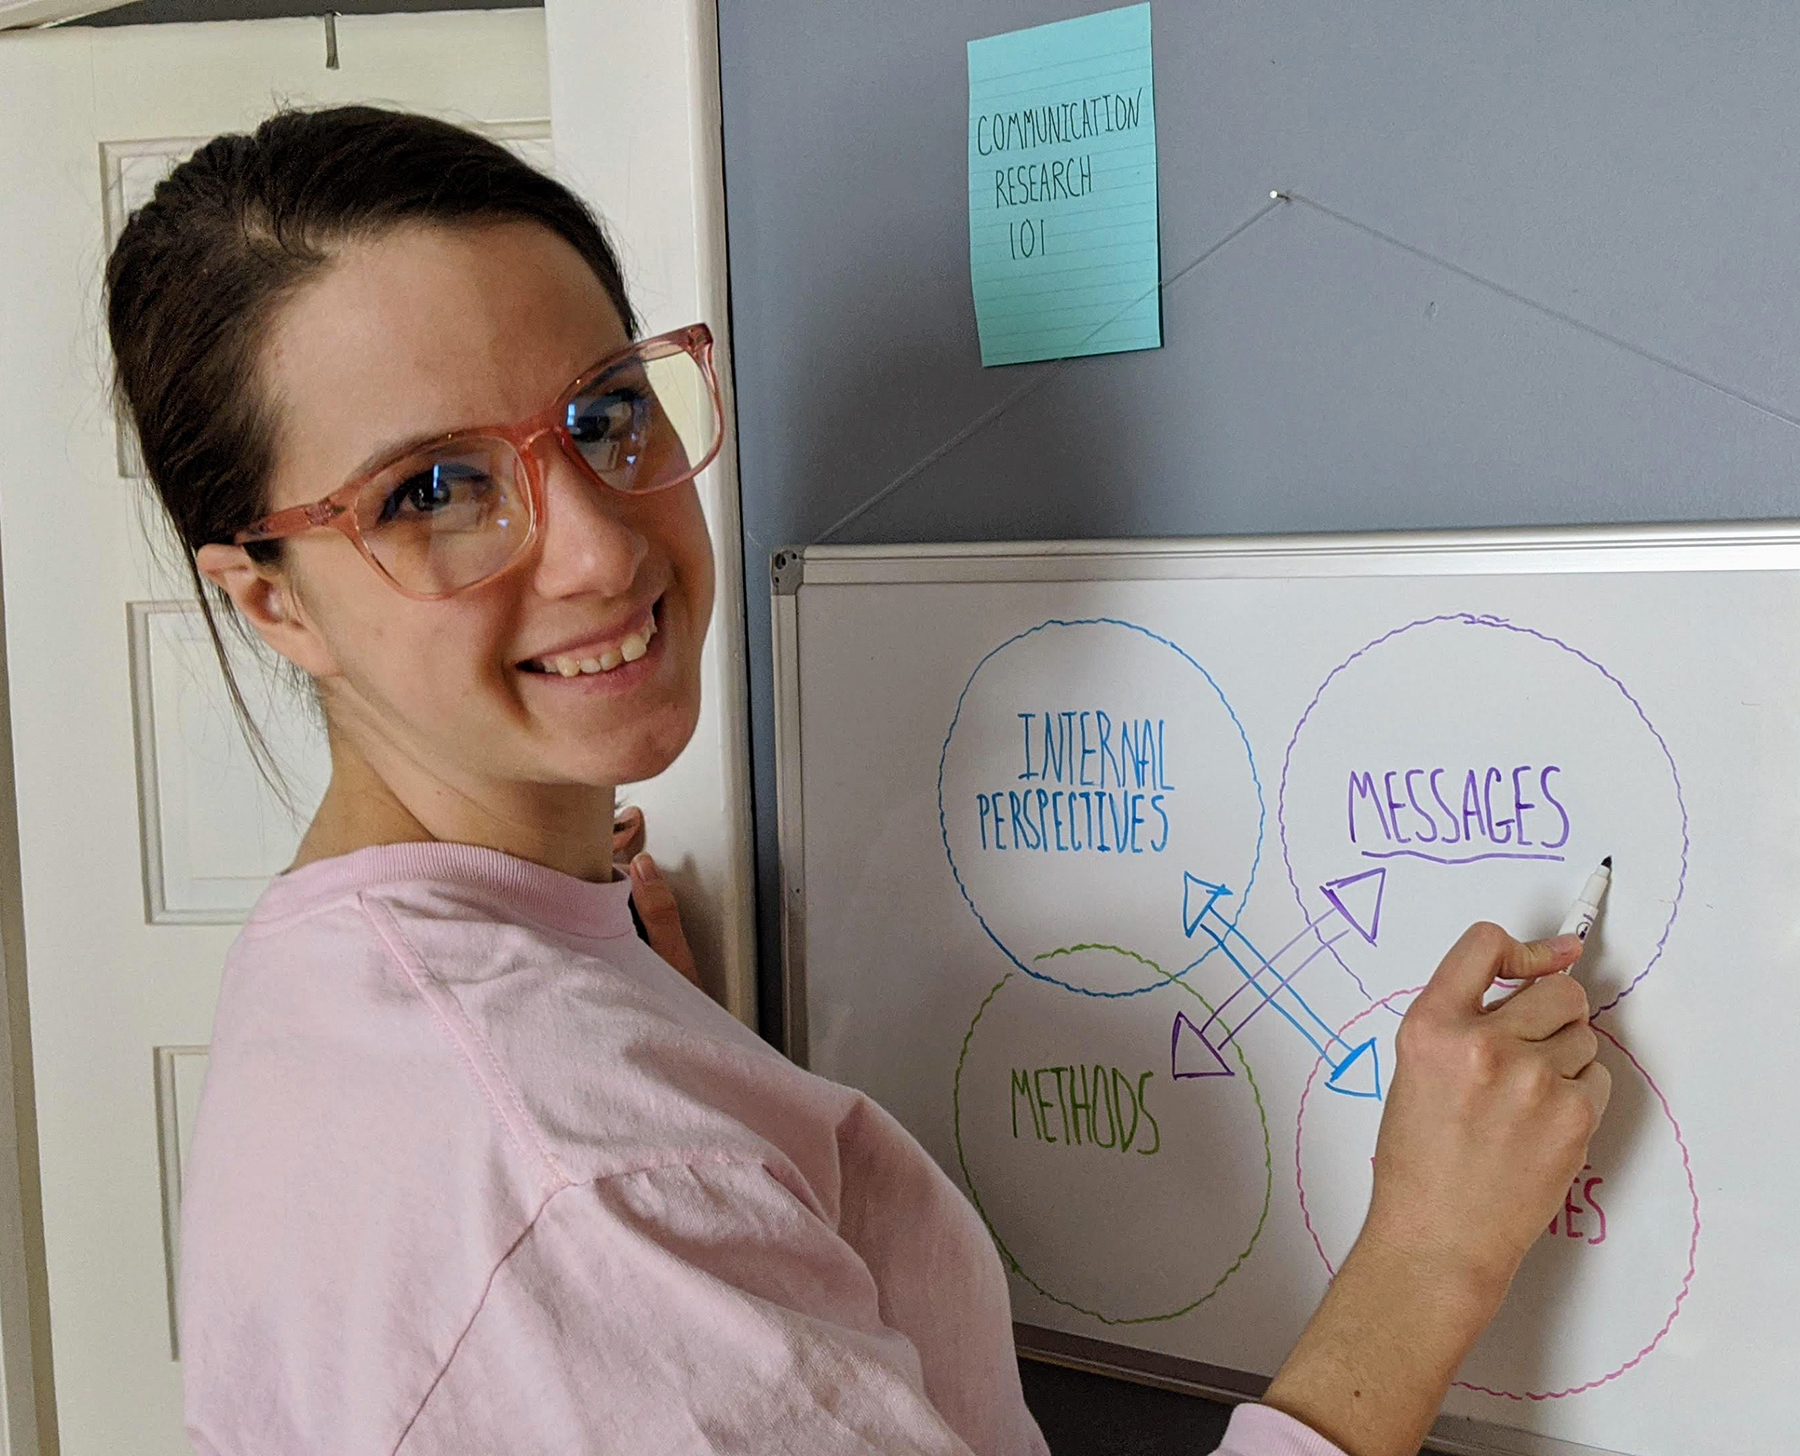 COMMUNICATION
RESEARCH
101
INTERNAL
PERSPECTIVES
MESSAGES
METHODS